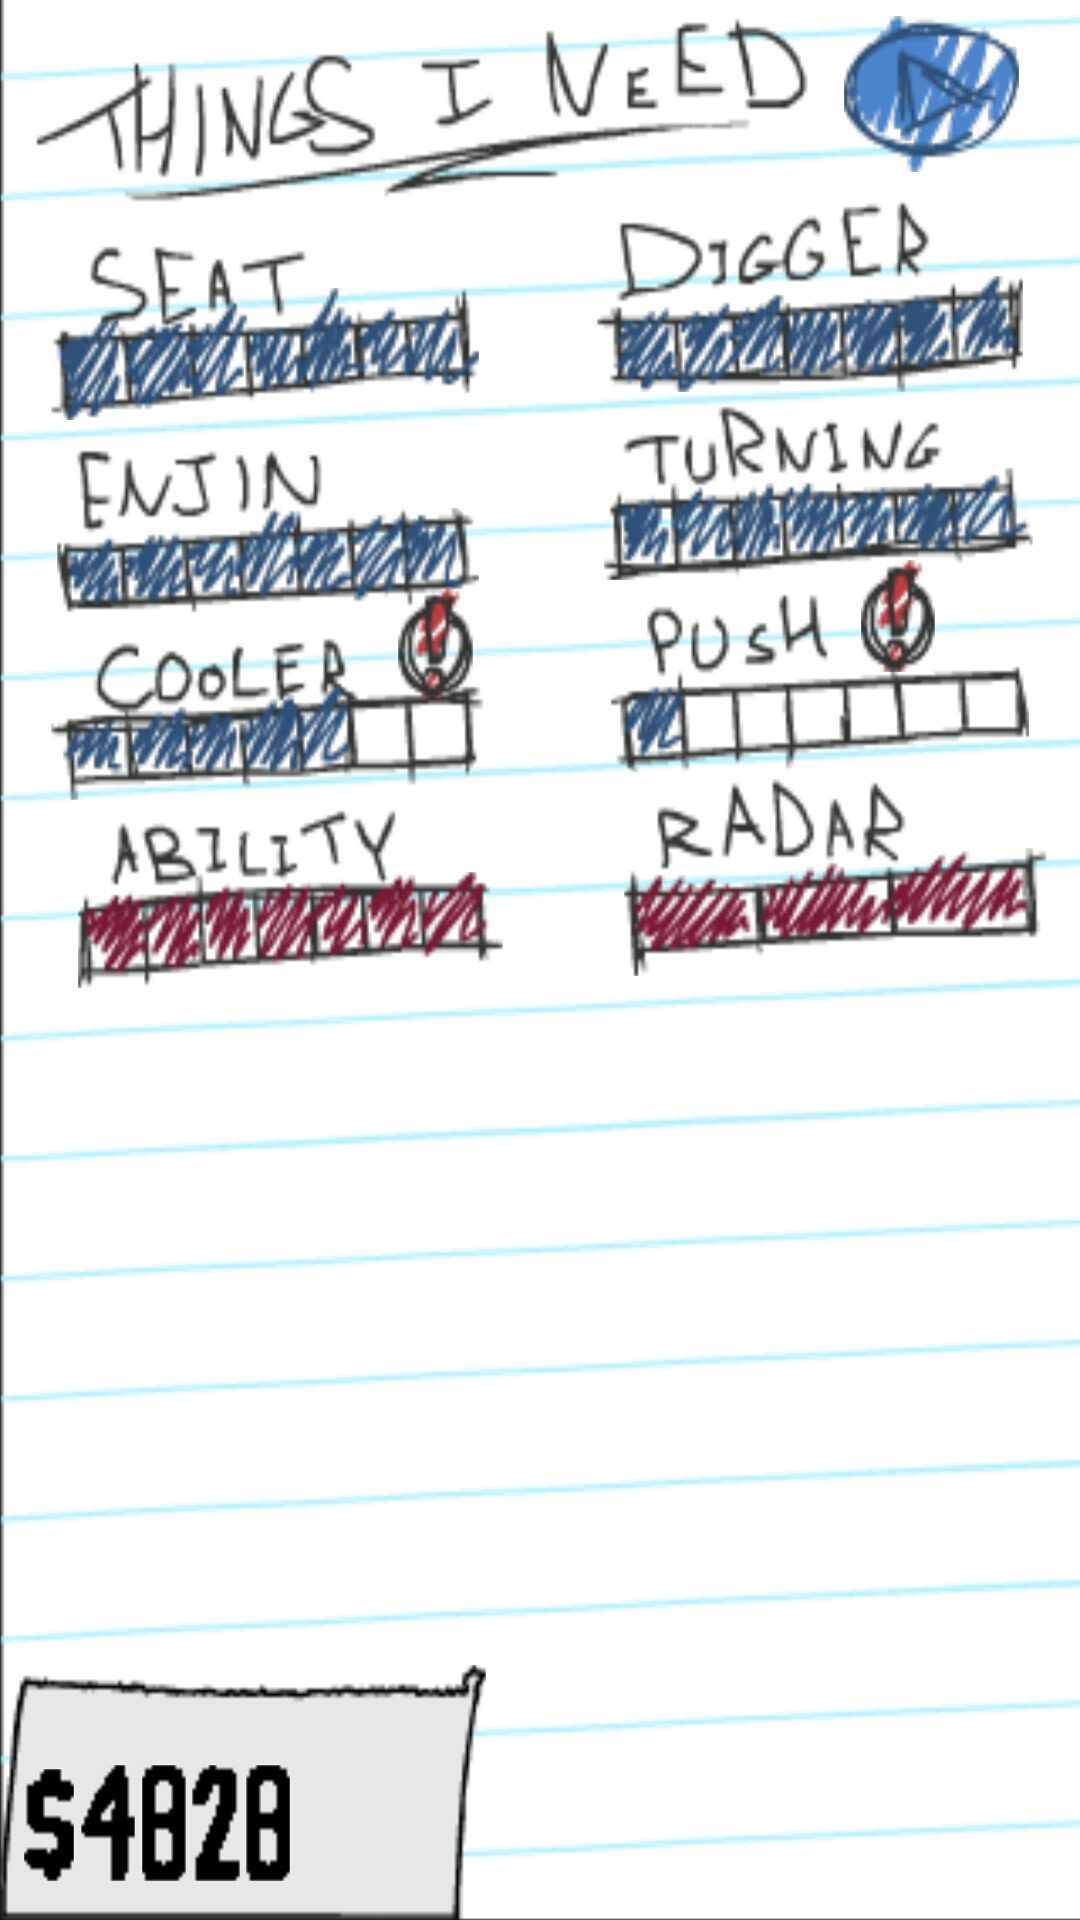 THINGS I NEED
SEAT DIGGER
ENJIN TURNING
COOLER ! PUSH !
ABILITY RADAR
$4828